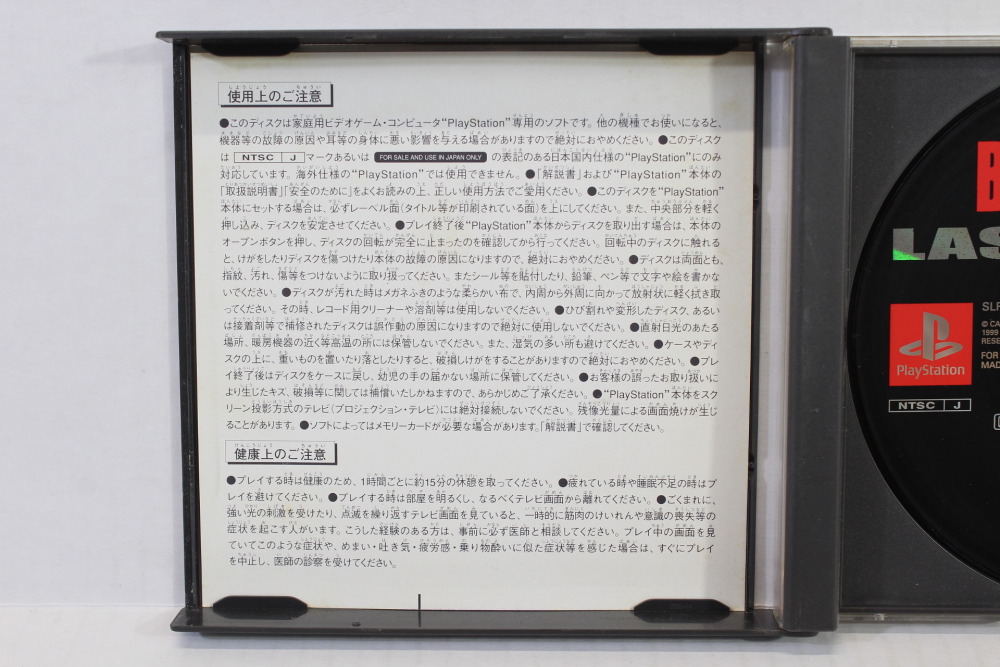 使用上のご注意
●このディスクは家庭用ビデオゲーム・コンピュータ“PlayStation”専用のソフトです。他の機種でお使いになると、
機器等の故障の原因や耳等の身体に悪い影響を与える場合がありますので絶対におやめください。●このディスク
は NTSC J マークあるいは FOR SALE AND USE IN JAPAN ONLY の表記のある日本国内仕様の“PlayStation”にのみ
対応しています。海外仕様の“PlayStation”では使用できません。●「解説書」および“PlayStation”本体の
「取扱説明書」「安全のために」をよくお読みの上、正しい使用方法でご愛用ください。●このディスクを“PlayStation”
本体にセットする場合は、必ずレーベル面(タイトル等が印刷されている面)を上にしてください。また、中央部分を軽く
押し込み、ディスクを安定させてください。●プレイ終了後“PlayStation”本体からディスクを取り出す場合は、本体の
オープンボタンを押し、ディスクの回転が完全に止まったのを確認してから行ってください。回転中のディスクに触れる
と、けがをしたりディスクを傷つけたり本体の故障の原因になりますので、絶対におやめください。●ディスクは両面とも、
指紋、汚れ、傷等をつけないように取り扱ってください。またシール等を貼付したり、鉛筆、ペン等で文字や絵を書かな
いでください。●ディスクが汚れた時はメガネふきのような柔らかい布で、内周から外周に向かって放射状に軽く拭き取
ってください。その時、レコード用クリーナーや溶剤等は使用しないでください。●ひび割れや変形したディスク、あるい
は接着剤等で補修されたディスクは誤作動の原因になりますので絶対に使用しないでください。●直射日光のあたる
場所、暖房機器の近く等高温の所には保管しないでください。また、湿気の多い所も避けてください。●ケースやディ
スクの上に、重いものを置いたり落としたりすると、破損しけがをすることがありますので絶対におやめください。●プレ
イ終了後はディスクをケースに戻し、幼児の手の届かない場所に保管してください。●お客様の誤ったお取り扱いに
より生じたキズ、破損等に関しては補償いたしかねますので、あらかじめご了承ください。●“PlayStation”本体をスク
リーン投影方式のテレビ(プロジェクション・テレビ)には絶対接続しないでください。残像光量による画面焼けが生じ
ることがあります。●ソフトによってはメモリーカードが必要な場合があります。「解説書」で確認してください。
健康上のご注意
●プレイする時は健康のため、1時間ごとに約15分の休憩を取ってください。●疲れている時や睡眠不足の時はプ
レイを避けてください。●プレイする時は部屋を明るくし、なるべくテレビ画面から離れてください。●ごくまれに、
強い光の刺激を受けたり、点滅を繰り返すテレビ画面を見ていると、一時的に筋肉のけいれんや意識の喪失等の
症状を起こす人がいます。こうした経験のある方は、事前に必ず医師と相談してください。プレイ中の画面を見
ていてこのような症状や、めまい・吐き気・疲労感・乗り物酔いに似た症状等を感じた場合は、すぐにプレイ
を中止し、医師の診察を受けてください。
LAS
SLP
© CA
1999
RESE
FOR
MAD
PlayStation
NTSC J